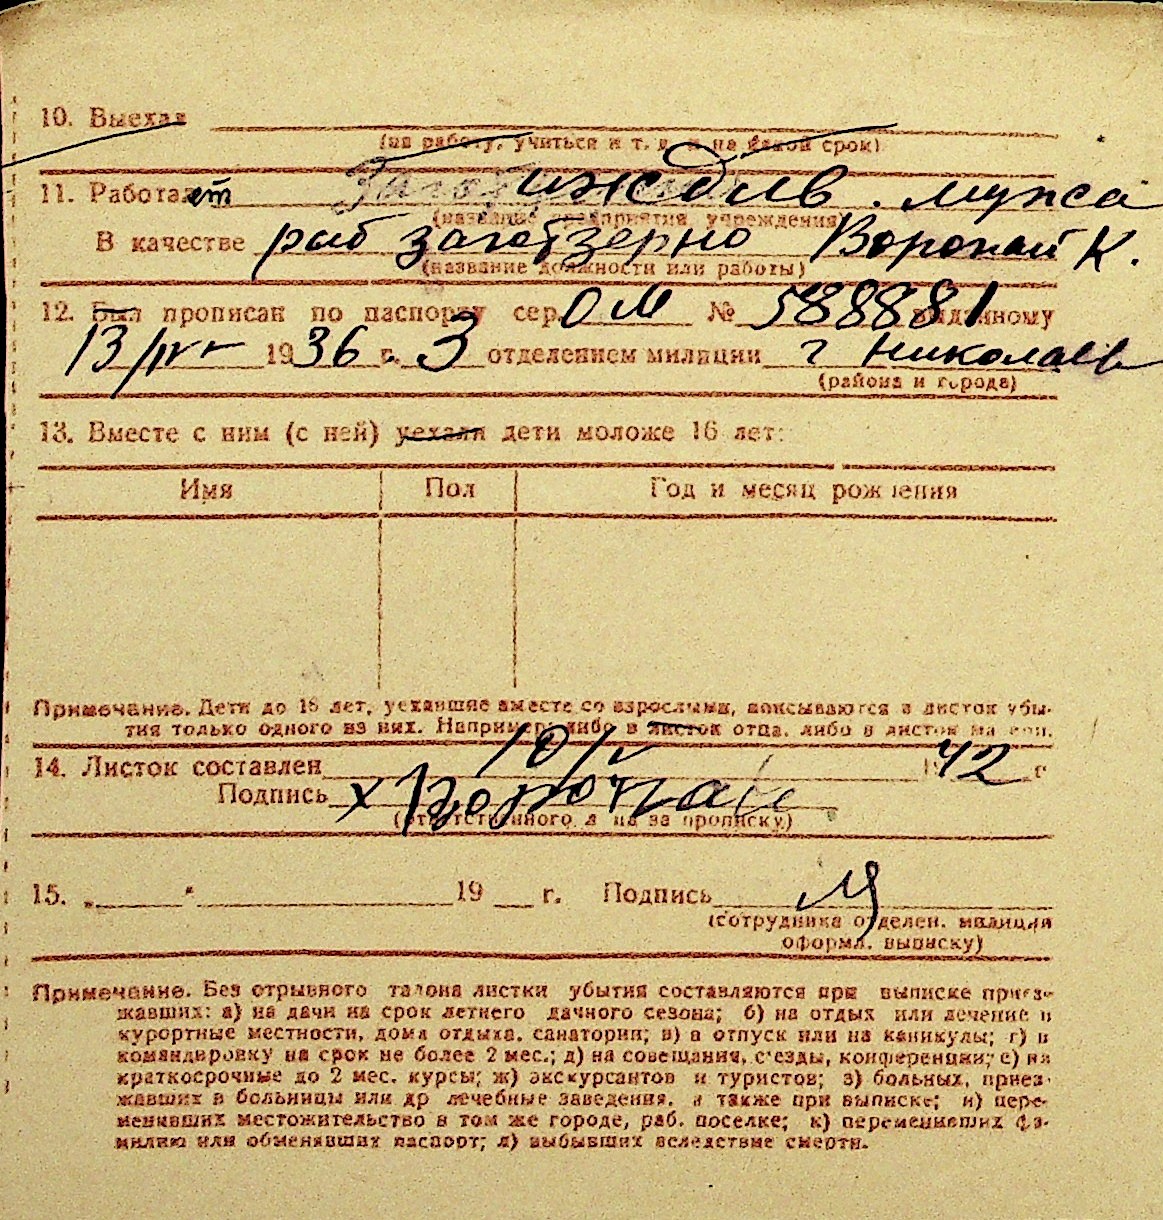 10. Выехал
(на работу, учиться и т. д. и на какой срок)
11. Работает иждив. мужа
(название предприятия учреждения)
В качестве раб заготзерно Воропай К.
(название должности или работы)
12. Был прописан по паспорту сер. ОМ № 588881 выданному
13/IV 1936 г. 3 отделением милиции г Николаев
(района и города)
13. Вместе с ним (с ней) уехали дети моложе 16 лет:
Имя Пол Год и месяц рождения
Примечание. Дети до 16 лет, уехавшие вместе со взрослыми, вписываются в листок убы-
тия только одного из них. Например: либо в листок отца, либо в листок матери.
14. Листок составлен 10/V 1942 г
Подпись х Воропай
(ответственного лица за прописку)
15. „ " 19 г. Подпись
(сотрудника отделен. милиции
оформл. выписку)
Примечание. Без отрывного талона листки убытия составляются при выписке приез-
жавших: а) на дачи на срок летнего дачного сезона; б) на отдых или лечение в
курортные местности, дома отдыха, санатории; в) в отпуск или на каникулы; г) в
командировку на срок не более 2 мес.; д) на совещания, съезды, конференции; е) на
краткосрочные до 2 мес. курсы; ж) экскурсантов и туристов; з) больных, приез-
жавших в больницы или др лечебные заведения, а также при выписке; и) пере-
менивших местожительство в том же городе, раб. поселке; к) переменивших фа-
милию или обменявших паспорт; л) выбывших вследствие смерти.